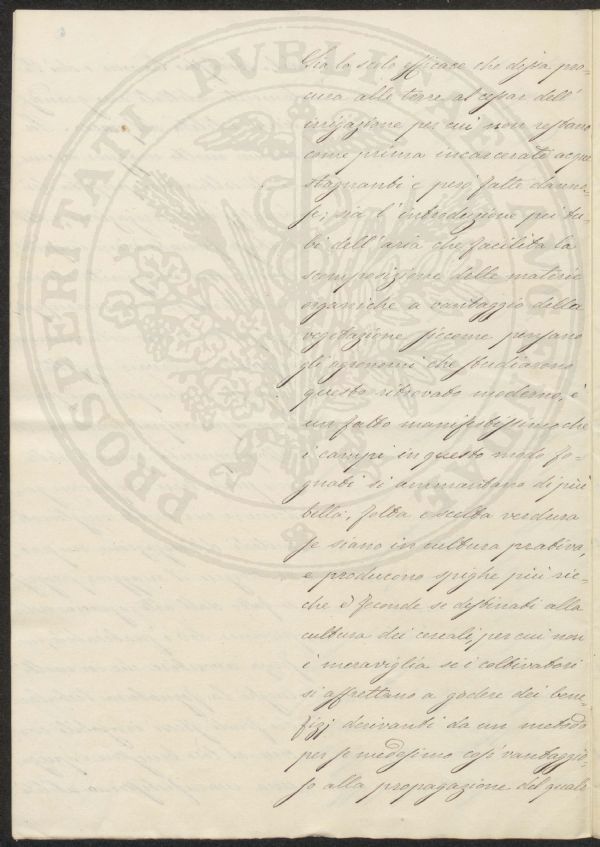 Sia lo scolo efficace che dessa pro=
cura alle terre al cessar dell'
irrigazione per cui non restano
come prima incarcerate acque
stagnanti e però fatte danno=
se; sia l'introduzione pei tu=
bi dell'aria che facilita la
scomposizione delle materie
organiche a vantaggio della
vegetazione siccome pensano
gli agronomi che studiarono
questo ritrovato moderno, è
un fatto manifestissimo che
i campi in questo modo fo=
gnati si ammantano di più
bella, folta e scelta verdura
se siano in cultura prativa,
e producono spighe più ric=
che e feconde se destinati alla
cultura dei cereali, per cui non
è meraviglia se i coltivatori
si affrettano a godere dei bene=
fizj derivanti da un metodo
per se medesimo così vantaggio=
so alla propagazione del quale
PROSPERITATI PVBLICAE